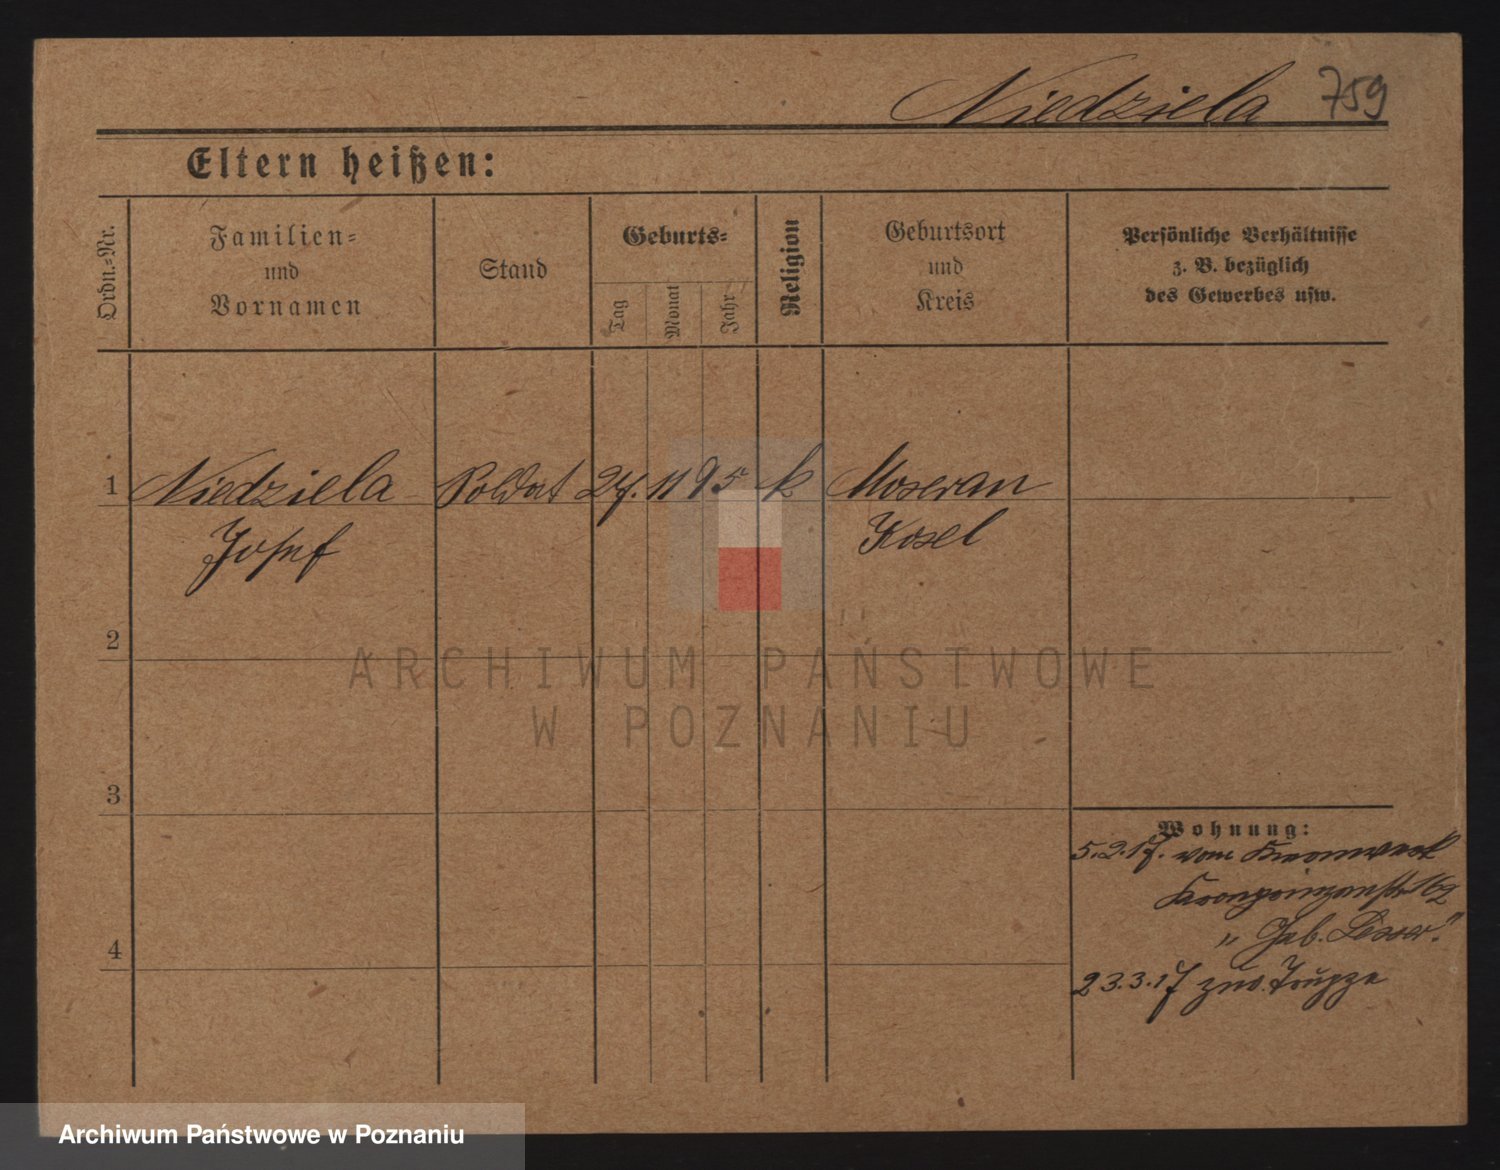 Niedziela 759
Eltern heißen:
Ordn.-Nr.
Familien-
und
Vornamen
Stand
Geburts-
Tag
Monat
Jahr
Religion
Geburtsort
und
Kreis
Persönliche Verhältnisse
z. B. bezüglich
des Gewerbes usw.
1 Niedziela Soldat 27. 11 95 k Moseran
Josef Kosel
2
3
4
Wohnung:
5.2.17. vom Kronwerk
Kronprinzenstr
" Geb.
23.3.17 zur Truppe
ARCHIWUM PAŃSTWOWE
W POZNANIU
Archiwum Państwowe w Poznaniu